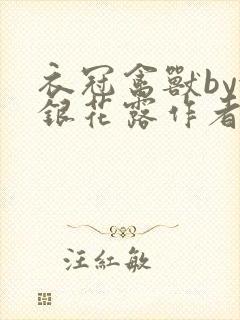 衣冠禽獸by
銀花露作者
汪紅敏